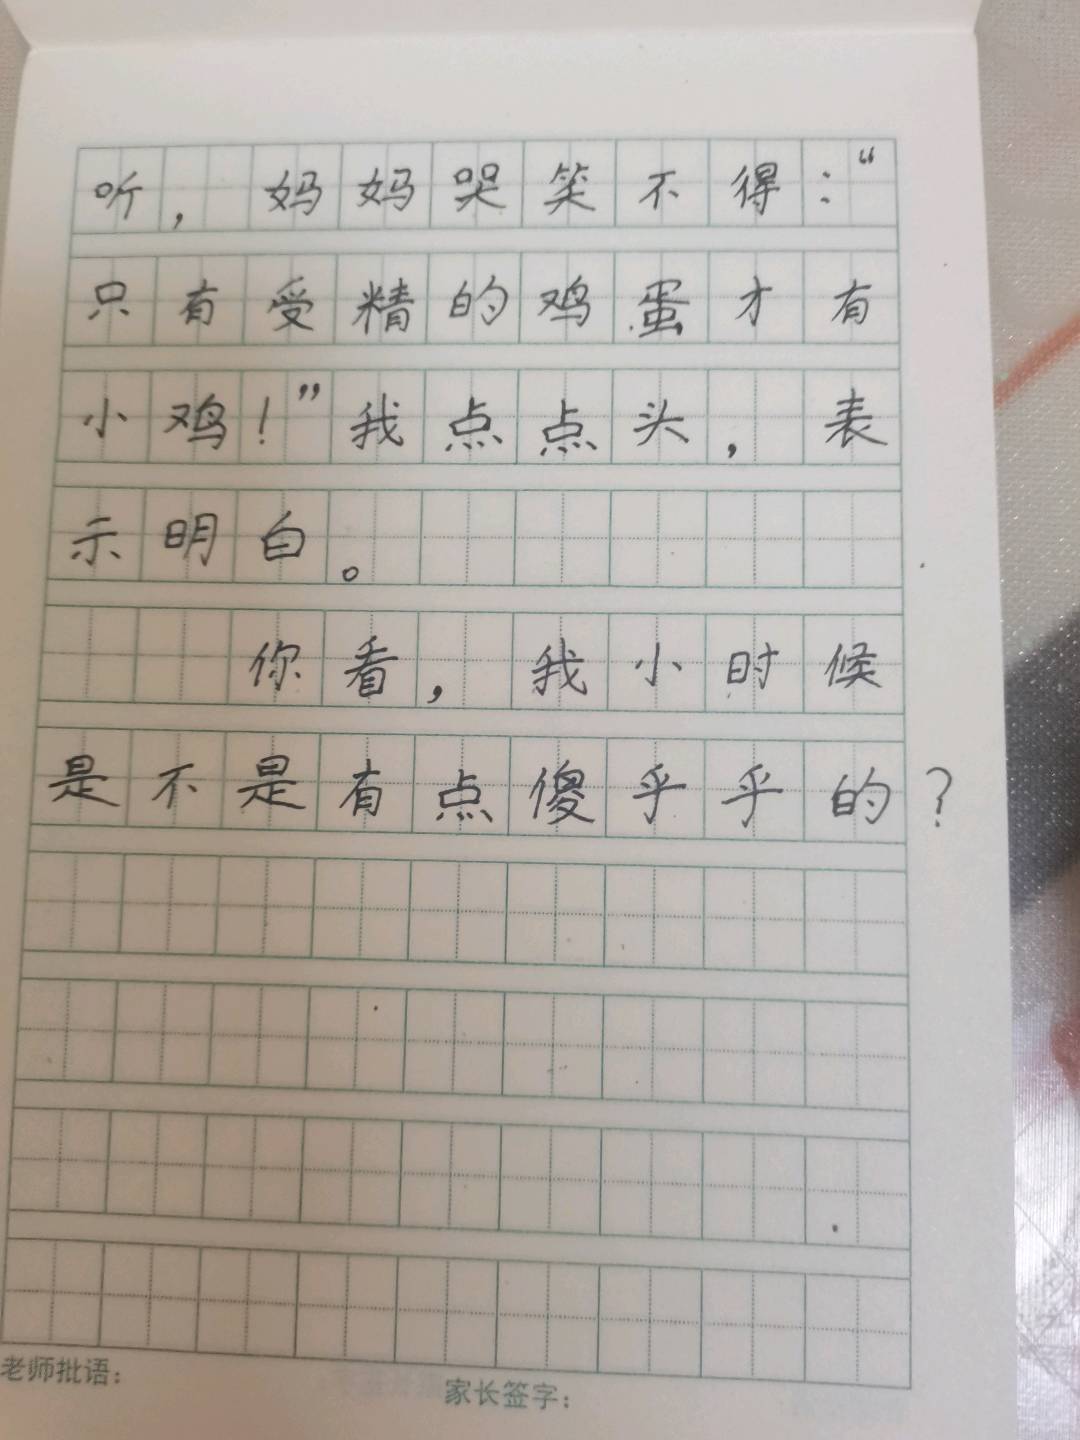 听，妈妈哭笑不得：“
只有受精的鸡蛋才有
小鸡！”我点点头，表
示明白。
你看，我小时候
是不是有点傻乎乎的？
老师批语：
家长签字：